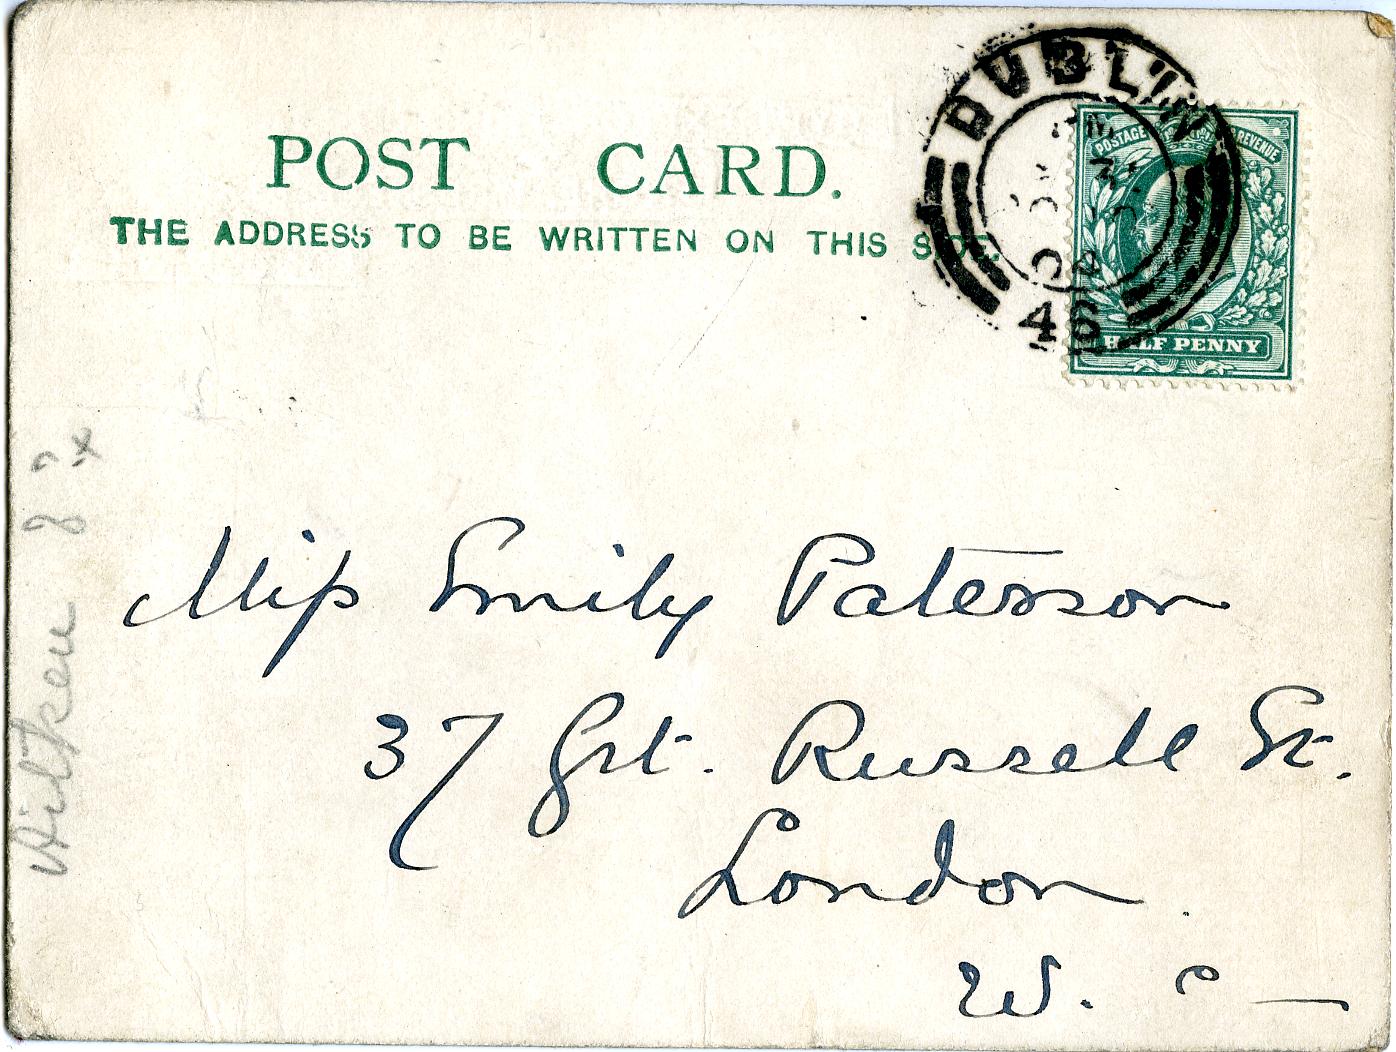 POST CARD.
THE ADDRESS TO BE WRITTEN ON THIS SIDE.
DUBLIN
04
46
POSTAGE REVENUE
HALF PENNY
Miss Emily Paterson
37 Grt. Russell St.
London.
W. C